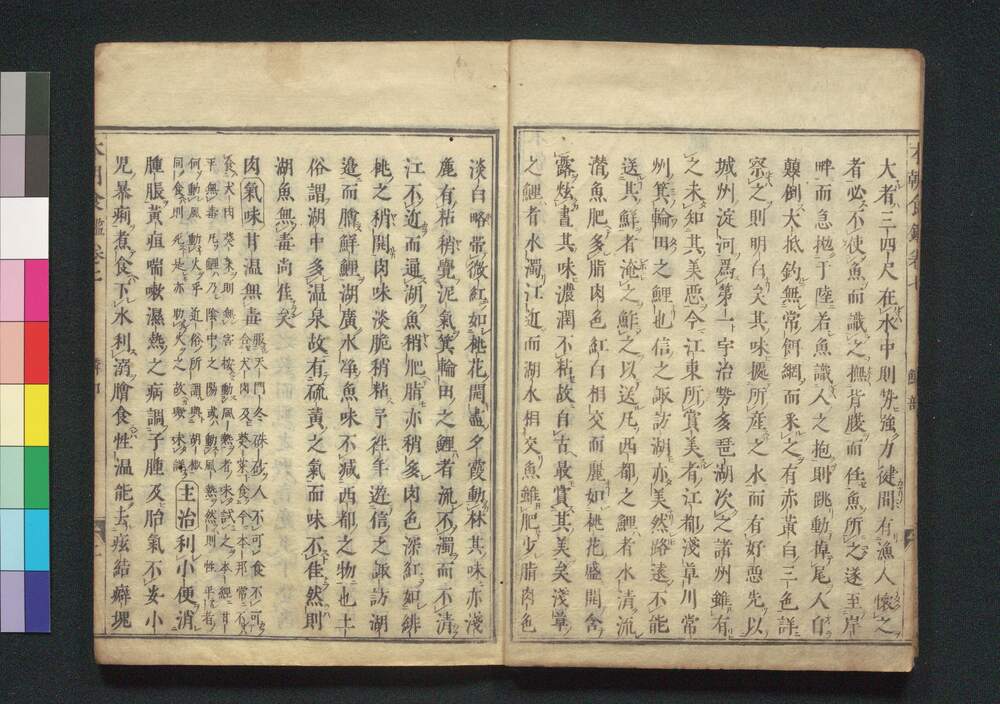 大者三四尺在水中則勢強力健間有漁人懷之
者必不使魚而識之撫背腹而任魚所之遂至岸
畔而急拋于陸若魚識人之抱則跳動掉尾人自
顛倒大抵釣無常餌網而釆之有赤黃白三色詳
察之則明白矣其味據所産之水而有好悪先以
城州淀河爲第一宇治勢多琵湖次之諸州雖有
之未知其美悪今江東所賞美者江都淺草川常
州箕輪田之鯉也信之諏訪湖亦美然路遠不能
送其鮮者淹之鮓之以送凡西都之鯉者水清流
潜魚肥多脂肉色紅白相交而麗如桃花盛開含
露炫晝其味濃潤不粘故自古最賞其美矣淺草
之鯉者水濁江近而湖水相交魚雖肥少脂肉色
淡白略帯微紅如桃花開盡夕霞動林其味亦淺
麁有粘稍覺泥氣箕輪田之鯉者流不濁而不清
江不近而通湖魚稍肥脂亦稍多肉色深紅如緋
桃之稍開肉味淡脆稍粘予往年遊信之諏訪湖
邉而膾鮮鯉湖廣水箏魚味不减西都之物也土
俗謂湖中多温泉故有硫黄之氣而味不佳然則
湖魚無毒尚佳矣
肉氣味甘温無毒服天門冬硃砂人不可食不可
食犬肉葵菜則無害按動風熱者未試之本經甘
平無毒凡鯉乃陰中之陽或動風熱然則性平者
何動風動火乎近俗所謂與胡椒
同食則死是亦助火之故歟未詳主治利小便消
腫脹黃疸喘嗽濕熱之病調子腫及胎氣不安小
児暴痢煮食下水利溺膾食性温能去痃結癖塊
本朝食鑑卷七